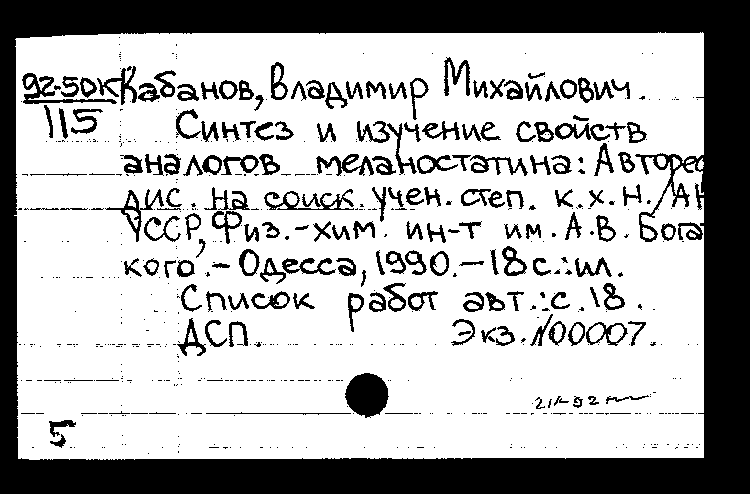 92-5DK Кабанов, Владимир Михайлович.
115 Синтез и изучение свойств
аналогов меланостатина: Авторе
дис. на соиск. учен. степ. к.х.н./АН
УССР, Физ.-хим. ин-т им. А.В. Богат
кого.- Одесса, 1990.-18с.:ил.
Список работ авт.:с.18.
ДСП. Экз.N00007.
5